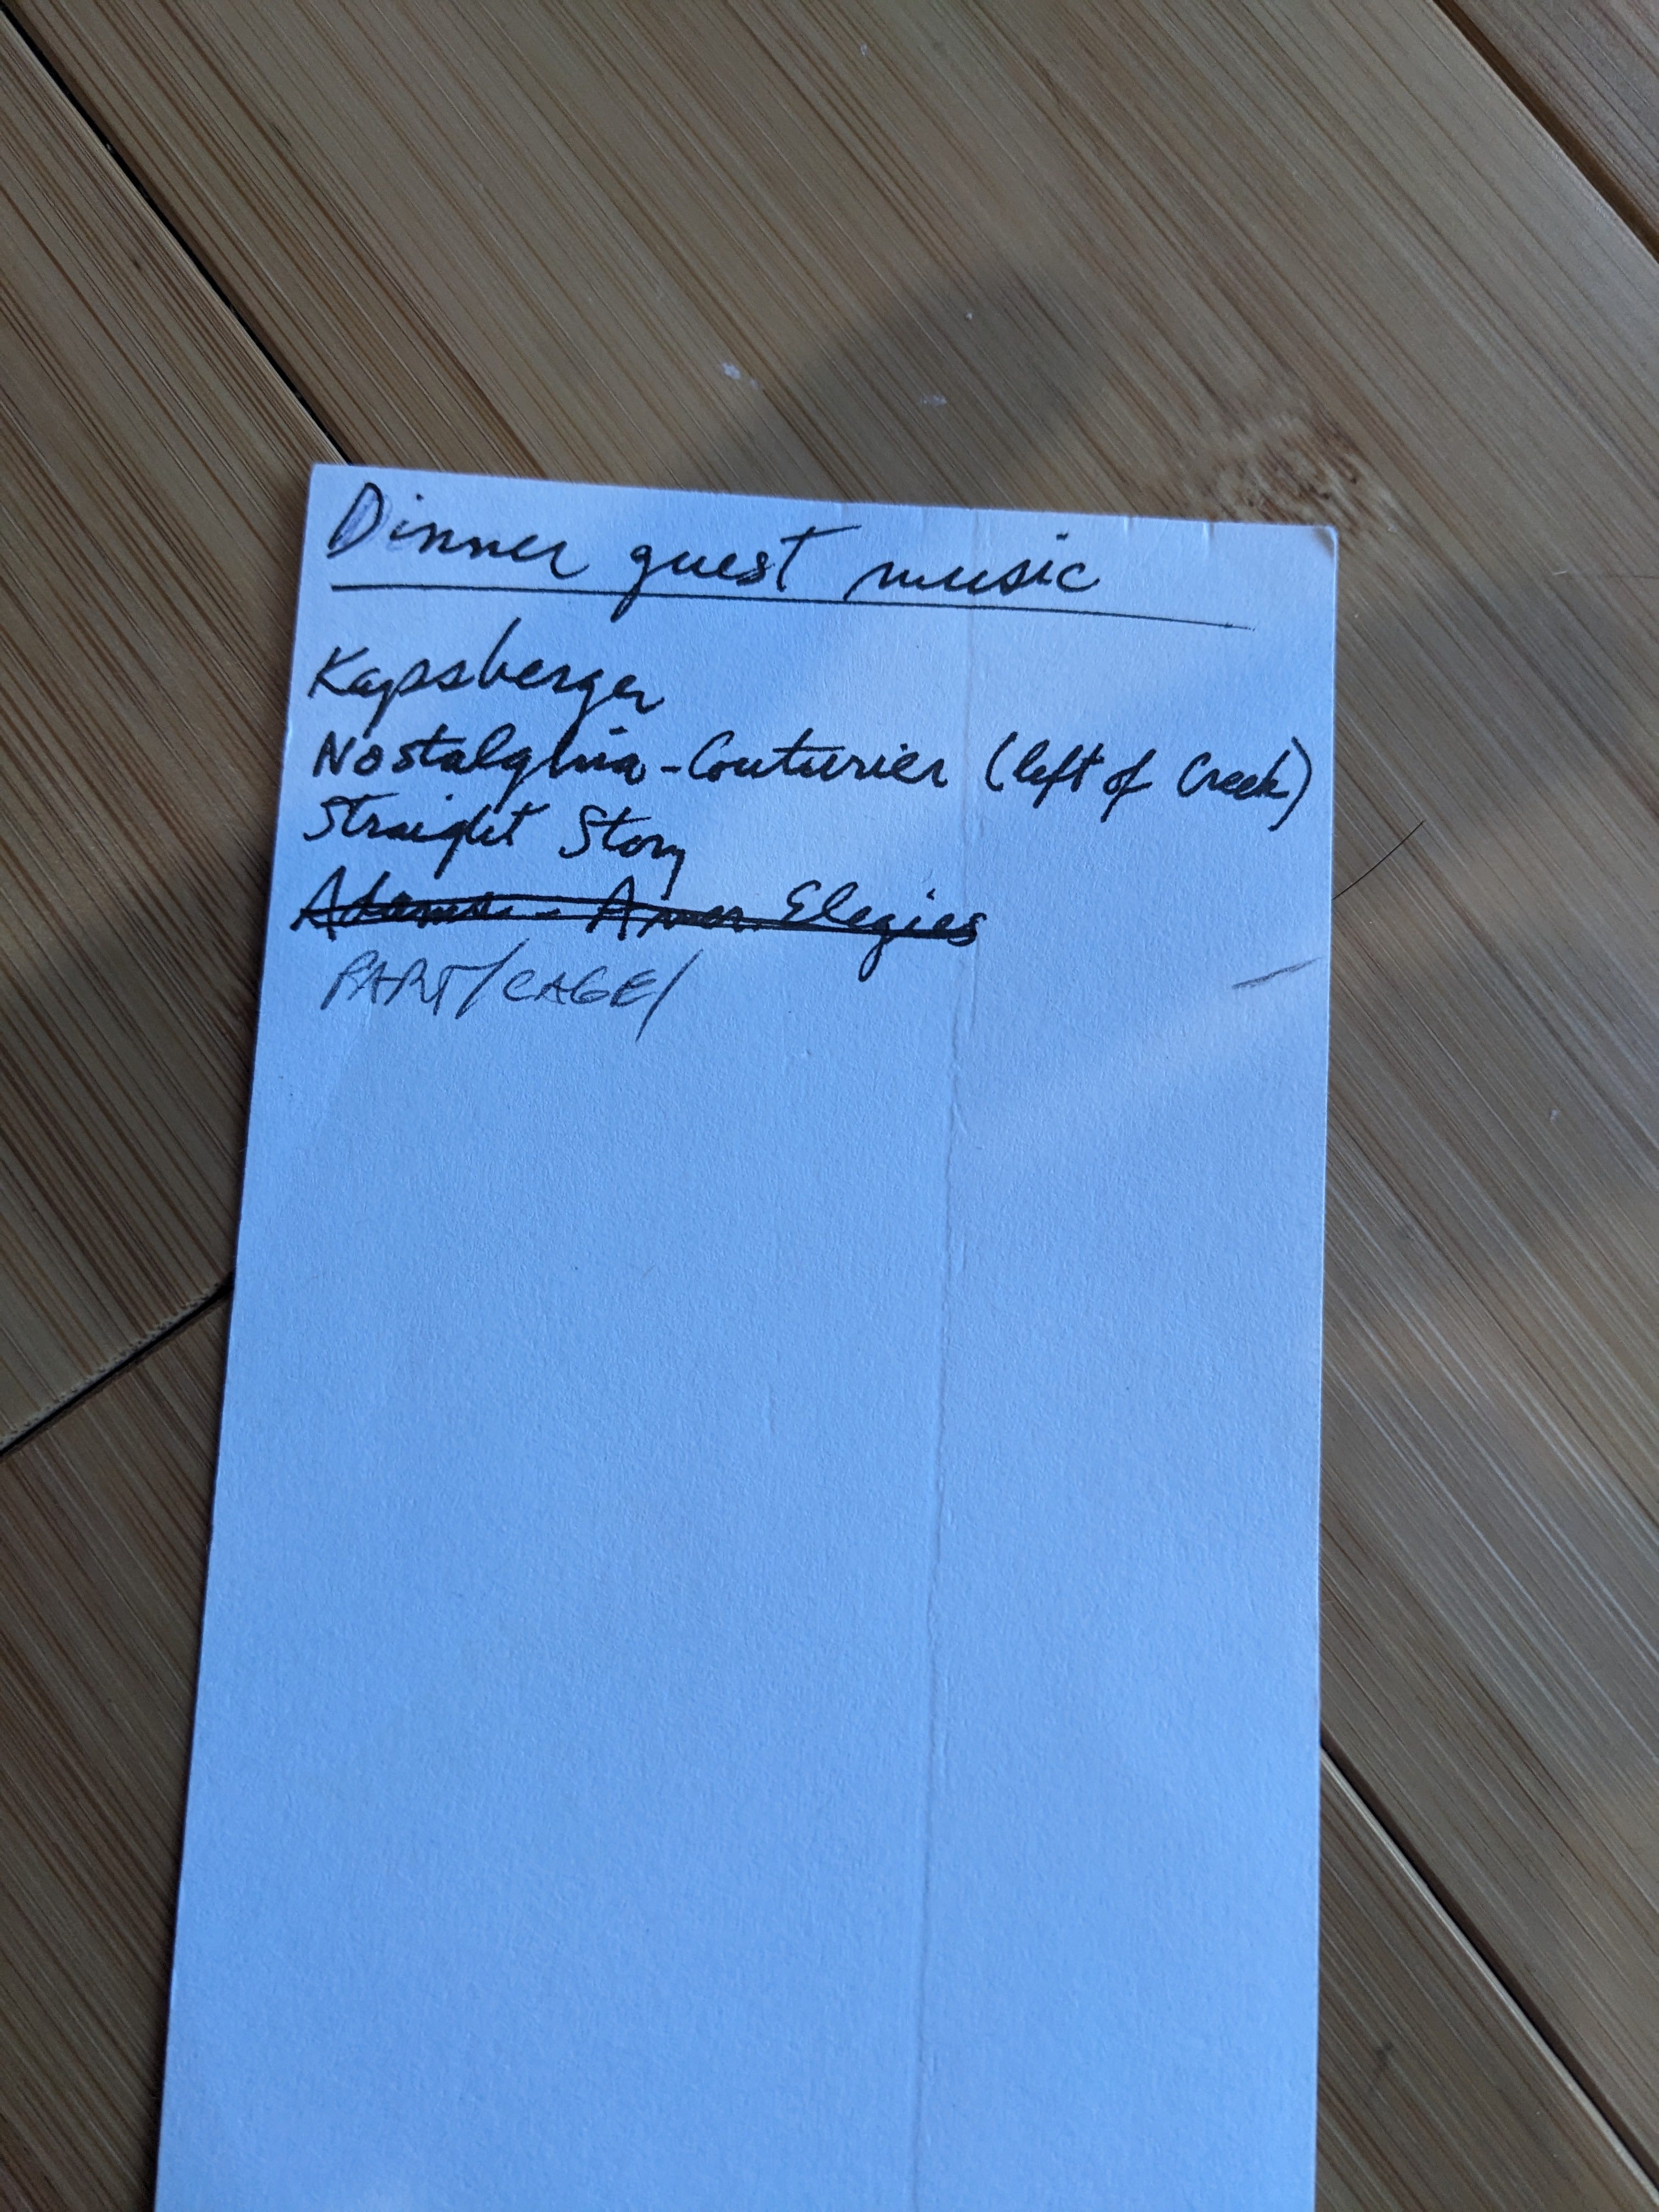 Dinner guest music
Kapsberger
Nostalghia - Couturier (left of Creek)
Straight Story
Adams - Amer. Elegies
PART/CAGE/